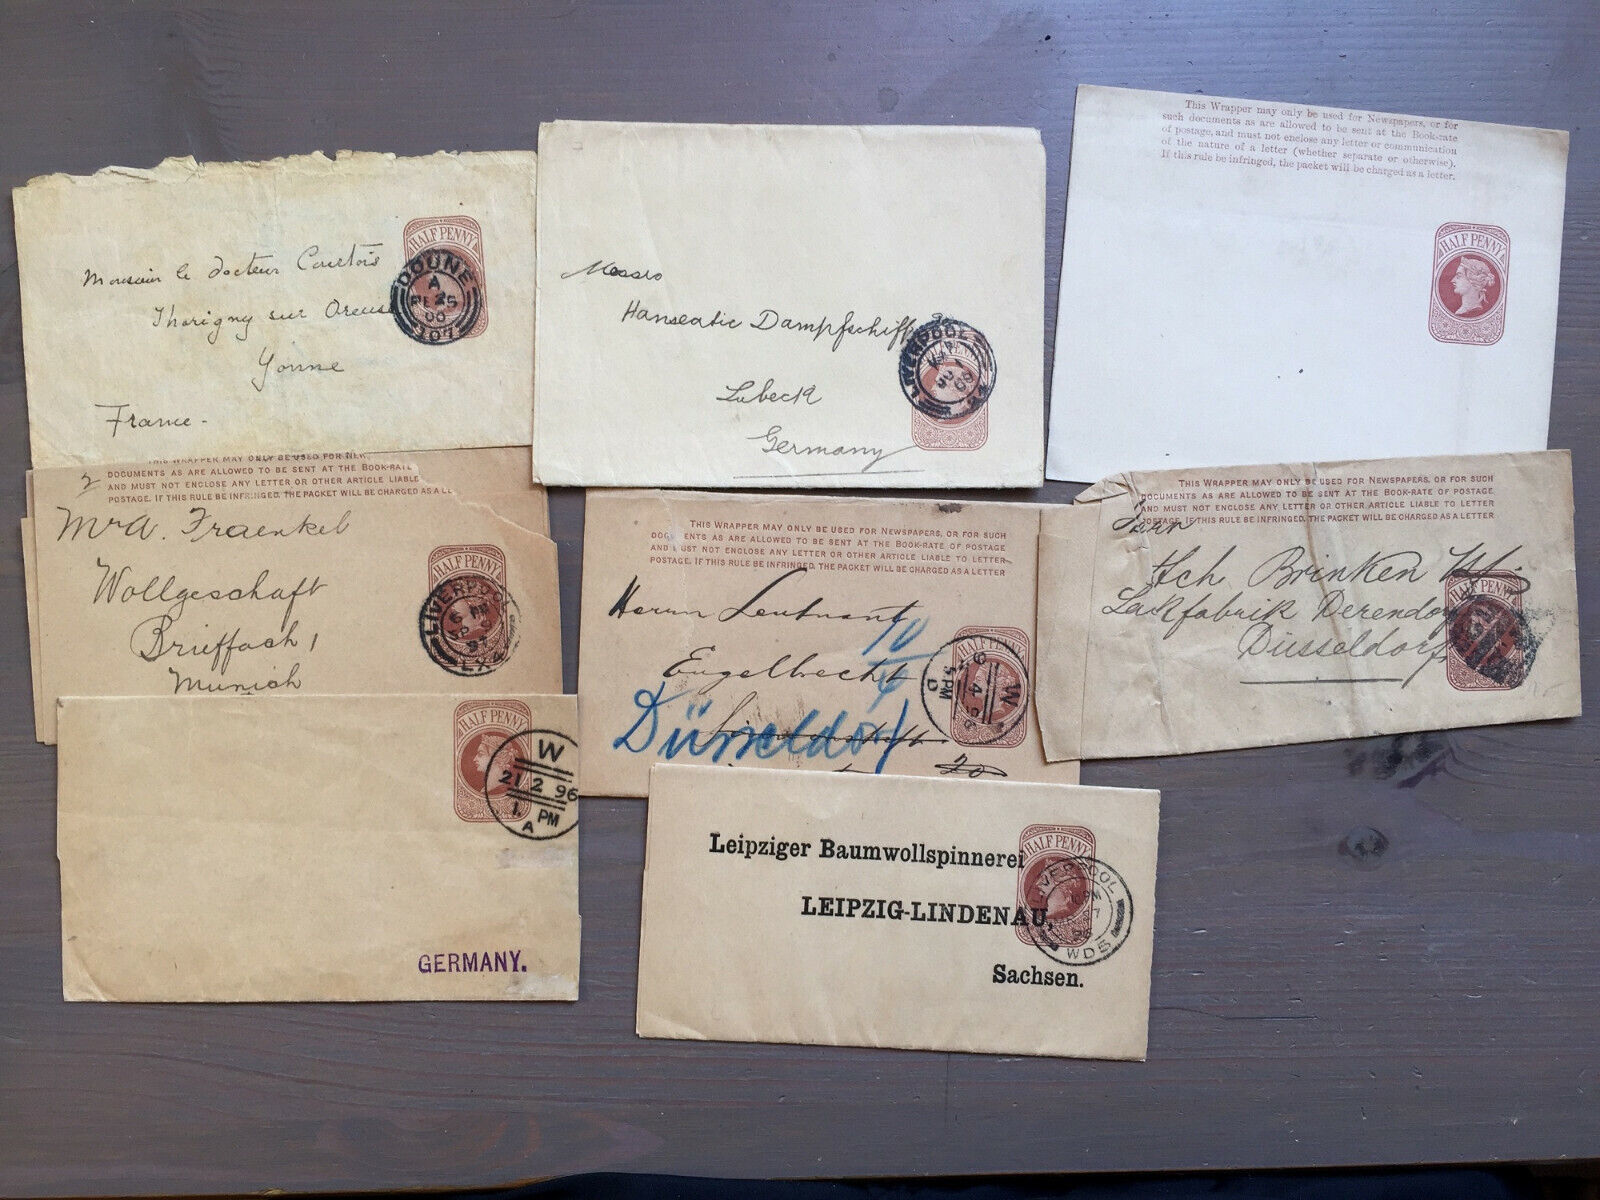 HALF PENNY
Monsieur le docteur Courtois
DOUNE
A
FE 25
00
107
Thorigny sur Oreuse
Yonne
France.
Messrs
Hanseatic Dampfschiff
LIVERPOOL
PENNY
Lubeck
Germany
This Wrapper may only be used for Newspapers, or for
such documents as are allowed to be sent at the Book-rate
of postage, and must not enclose any letter or communication
of the nature of a letter (whether separate or otherwise).
If this rule be infringed, the packet will be charged as a letter.
HALF PENNY
THIS WRAPPER MAY ONLY BE USED FOR NEW
2 DOCUMENTS AS ARE ALLOWED TO BE SENT AT THE BOOK-RATE
AND MUST NOT ENCLOSE ANY LETTER OR OTHER ARTICLE LIABLE
POSTAGE. IF THIS RULE BE INFRINGED, THE PACKET WILL BE CHARGED AS A LE
Mr A. Fraenkel
HALF PENNY
Wollgeschaft
LIVERPOOL
6 PM
97
LX4
Brieffach 1
Munich
THIS WRAPPER MAY ONLY BE USED FOR NEWSPAPERS, OR FOR SUCH
DOCUMENTS AS ARE ALLOWED TO BE SENT AT THE BOOK-RATE OF POSTAGE
AND MUST NOT ENCLOSE ANY LETTER OR OTHER ARTICLE LIABLE TO LETTER
POSTAGE. IF THIS RULE BE INFRINGED, THE PACKET WILL BE CHARGED AS A LETTER
Herrn Leutnant
10/4
HALF PENNY
Engelbrecht
W
9 4
5 PM
D
Düsseldorf
20
THIS WRAPPER MAY ONLY BE USED FOR NEWSPAPERS, OR FOR SUCH
DOCUMENTS AS ARE ALLOWED TO BE SENT AT THE BOOK-RATE OF POSTAGE
AND MUST NOT ENCLOSE ANY LETTER OR OTHER ARTICLE LIABLE TO LETTER
POSTAGE. IF THIS RULE BE INFRINGED, THE PACKET WILL BE CHARGED AS A LETTER
Hch Brinken
HALF PENNY
Lakfabrik Derendorf
Düsseldorf
HALF PENNY
W
21 2 96
1. PM
A
GERMANY.
HALF PENNY
Leipziger Baumwollspinnerei
LIVERPOOL
LEIPZIG-LINDENAU,
PM
96
WD5
Sachsen.